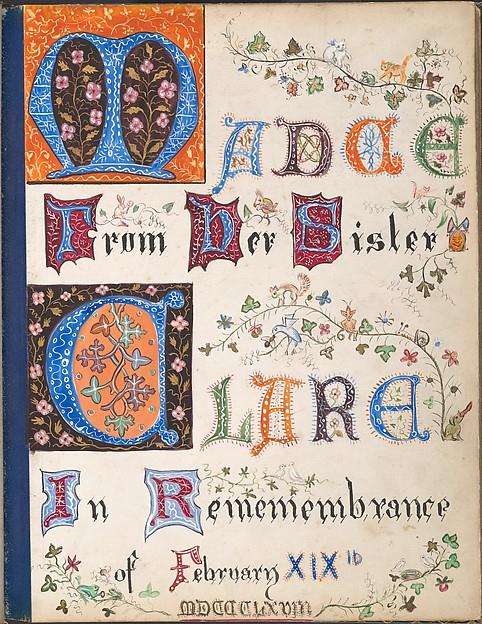 MADGE
From Her Sister
CLARE
In Rememembrance
of February XIXth
MDCCCLXVIII